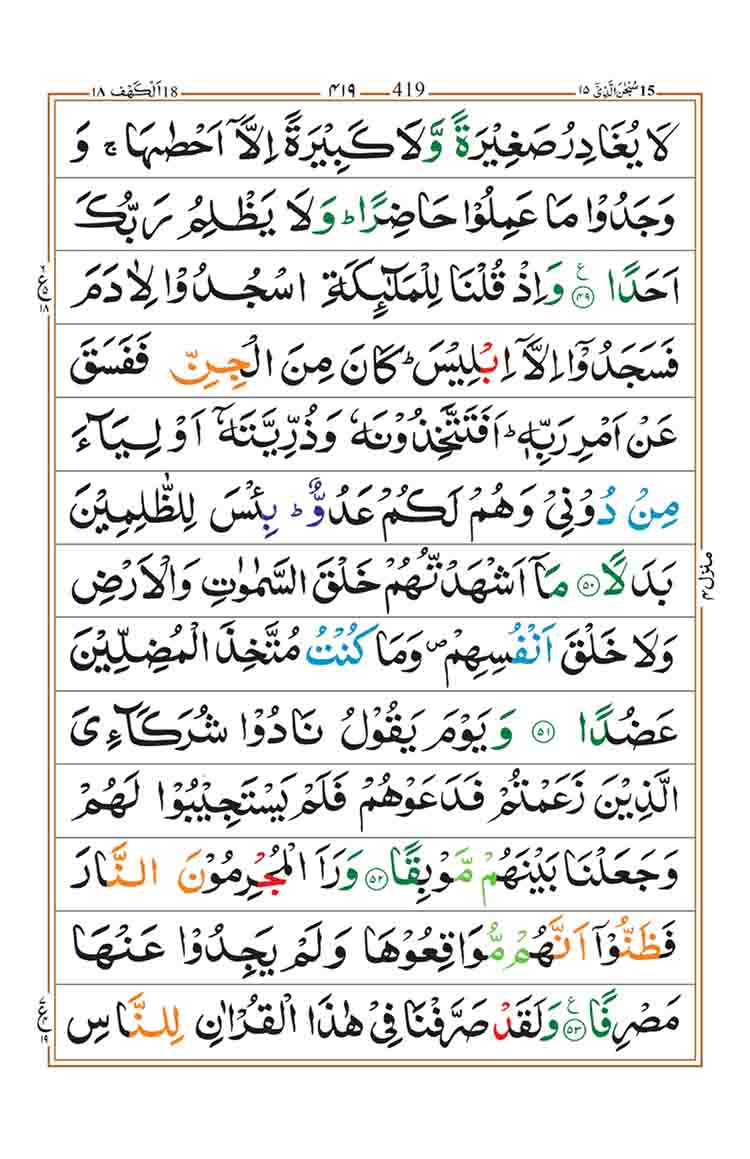 ١٨ اَلْكَهْف 18 ٤١٩ 419 ١٥ سُبْحٰنَ الَّذِیْۤ 15
لَا یُغَادِرُ صَغِیْرَةً وَّلَا كَبِیْرَةً اِلَّاۤ اَحْصٰىهَا ۚ وَ
وَجَدُوْا مَا عَمِلُوْا حَاضِرًا ؕ وَلَا یَظْلِمُ رَبُّكَ
اَحَدًا ۟ع ٤٩ وَاِذْ قُلْنَا لِلْمَلٰٓىِٕكَةِ اسْجُدُوْا لِاٰدَمَ
فَسَجَدُوْۤا اِلَّاۤ اِبْلِیْسَ ؕ كَانَ مِنَ الْجِنِّ فَفَسَقَ
عَنْ اَمْرِ رَبِّهٖ ؕ اَفَتَتَّخِذُوْنَهٗ وَذُرِّیَّتَهٗۤ اَوْلِیَآءَ
مِنْ دُوْنِیْ وَهُمْ لَكُمْ عَدُوٌّ ؕ بِئْسَ لِلظّٰلِمِیْنَ
بَدَلًا ٥٠ مَاۤ اَشْهَدْتُّهُمْ خَلْقَ السَّمٰوٰتِ وَالْاَرْضِ
وَلَا خَلْقَ اَنْفُسِهِمْ ۪ وَمَا كُنْتُ مُتَّخِذَ الْمُضِلِّیْنَ
عَضُدًا ٥١ وَیَوْمَ یَقُوْلُ نَادُوْا شُرَكَآءِیَ
الَّذِیْنَ زَعَمْتُمْ فَدَعَوْهُمْ فَلَمْ یَسْتَجِیْبُوْا لَهُمْ
وَجَعَلْنَا بَیْنَهُمْ مَّوْبِقًا ٥٢ وَرَاَ الْمُجْرِمُوْنَ النَّارَ
فَظَنُّوْۤا اَنَّهُمْ مُّوَاقِعُوْهَا وَلَمْ یَجِدُوْا عَنْهَا
مَصْرِفًا ع ٥٣ وَلَقَدْ صَرَّفْنَا فِیْ هٰذَا الْقُرْاٰنِ لِلنَّاسِ
ع ٥ ١٨
منزل ٤
ع ١٩